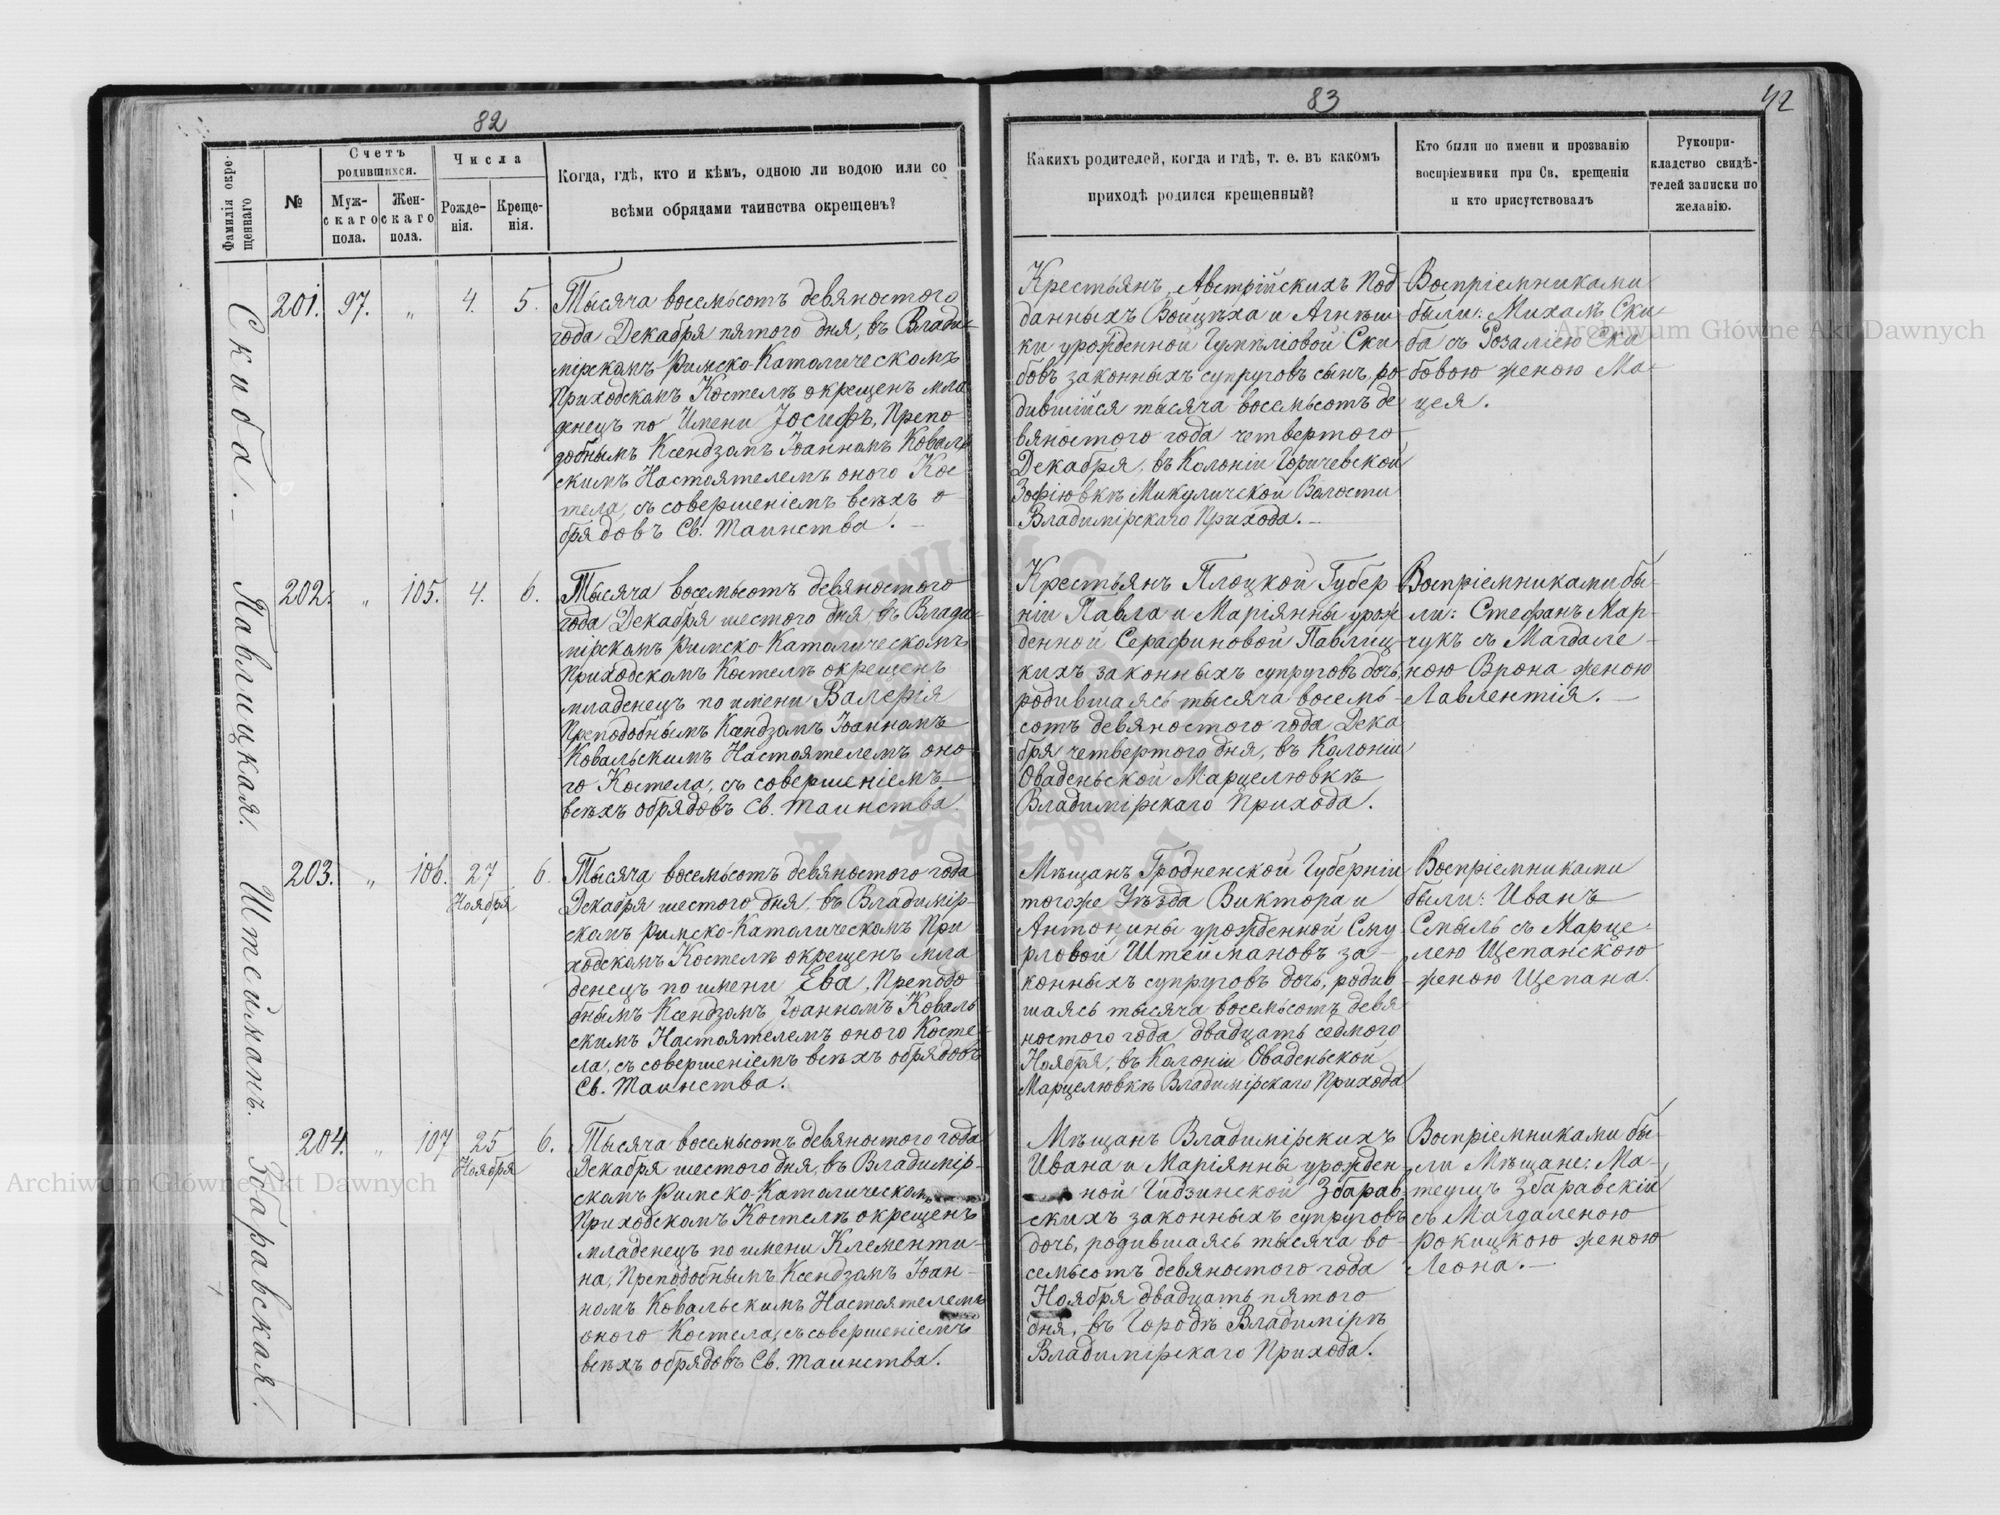 82
Фамилія окре-
щеннаго
№
Счетъ
родившихся.
Муж-
скаго
пола.
Жен-
скаго
пола.
Числа
Рожде-
нія.
Креще-
нія.
Когда, гдѣ, кто и кѣмъ, одною ли водою или со
всѣми обрядами таинства окрещенъ?
Скиба.
201. 97. „ 4. 5.
Тысяча восемьсотъ девяностого
года Декабря пятого дня, въ Влади-
мірскомъ Римско-Католическомъ
Приходскомъ Костелѣ окрещенъ мла
денецъ по Имени Іосифъ, Препо
добнымъ Ксендзомъ Іоанномъ Коваль
скимъ Настоятелемъ оного Кос
тела, съ совершеніемъ всѣхъ о
брядовъ Св. Таинства.
Павлицкая.
202. „ 105. 4. 6.
Тысяча восемьсотъ девяностого
года Декабря шестого дня, въ Влади-
мірскомъ Римско-Католическомъ
Приходскомъ Костелѣ окрещенъ
младенецъ по имени Валерія
Преподобнымъ Ксендзомъ Іоанномъ
Ковальскимъ Настоятелемъ оно-
го Костела, съ совершеніемъ
всѣхъ обрядовъ Св. Таинства.
Штейманъ.
203. „ 106. 27 Ноября 6.
Тысяча восемьсотъ девяностого года
Декабря шестого дня, въ Владимір-
скомъ Римско-Католическомъ При
ходскомъ Костелѣ окрещенъ мла
денецъ по имени Ева, Преподо
бнымъ Ксендзомъ Іоанномъ Коваль
скимъ Настоятелемъ оного Косте-
ла, съ совершеніемъ всѣхъ обрядовъ
Св. Таинства.
Збаравская.
204. „ 107 25 Ноября 6.
Тысяча восемьсотъ девяностого года
Декабря шестого дня, въ Владимір-
скомъ Римско-Католическомъ
Приходскомъ Костелѣ окрещенъ
младенецъ по имени Клементи-
на, Преподобнымъ Ксендзомъ Іоан-
номъ Ковальскимъ Настоятелемъ
оного Костела, съ совершеніемъ
всѣхъ обрядовъ Св. Таинства.
83
42
Какихъ родителей, когда и гдѣ, т. е. въ какомъ
приходѣ родился крещенный?
Кто были по имени и прозванію
воспріемники при Св. крещеніи
и кто присутствовалъ
Рукопри-
кладство свидѣ-
телей записки по
желанію.
Крестьянъ, Австрійскихъ Под
данныхъ Войцѣха и Агнѣш
ки урожденной Гумѣліовой Ски
бовъ законныхъ супруговъ сынъ, ро
дившійся тысяча восемьсотъ де
вяностого года четвертого
Декабря, въ Колоніи Горичевской
Зофіювкѣ Микуличской Волости
Владимірскаго Прихода.
Воспріемниками
были: Михалъ Ски-
ба съ Розаліею Ски
бовою женою Ма-
цея.
Крестьянъ Плоцкой Губер
ніи Павла и Маріянны урож
денной Серафиновой Павлиц-
кихъ законныхъ супруговъ дочь,
родившаясь тысяча восемь-
сотъ девяностого года Дека
бря четвертого дня, въ Колоніи
Оваденьской Марцелювкѣ
Владимірскаго Прихода.
Воспріемниками бы-
ли: Стефанъ Мар-
чукъ съ Магдале-
ною Врона женою
Лаврентія.
Мѣщанъ Гродненской Губерніи
тогоже Уѣзда Виктора и
Антонины урожденной Сму
рловой Штеймановъ за-
конныхъ супруговъ дочь, родив
шаясь тысяча восемьсотъ девя
ностого года двадцать седмого
Ноября, въ Колоніи Оваденьской
Марцелювкѣ Владимірскаго Прихода
Воспріемниками
были: Иванъ
Смыль съ Марце-
лею Щепанскою
женою Щепана.
Мѣщанъ Владимірскихъ
Ивана и Маріянны урожден-
ной Гидзинской Збарав
скихъ законныхъ супруговъ
дочь, родившаясь тысяча во-
семьсотъ девяностого года
Ноября двадцать пятого
дня, въ Городѣ Владимірѣ
Владимірскаго Прихода.
Воспріемниками бы-
ли Мѣщане: Ма-
теушъ Збаравскій
съ Магдаленою
Рокицкою женою
Леона.
Archiwum Główne Akt Dawnych
Archiwum Główne Akt Dawnych